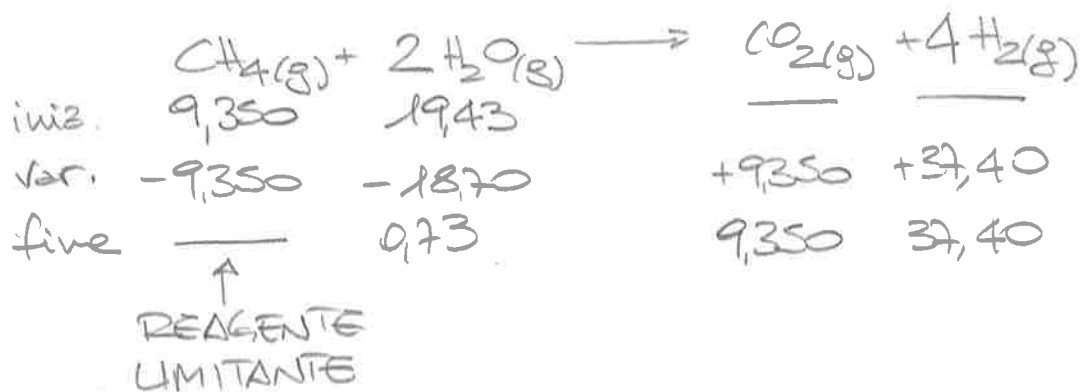 CH4(g) + 2 H2O(g) → CO2(g) + 4 H2(g)
iniz. 9,350 19,43 — —
var. -9,350 -18,70 +9,350 +37,40
fine — 0,73 9,350 37,40
↑
REAGENTE
LIMITANTE